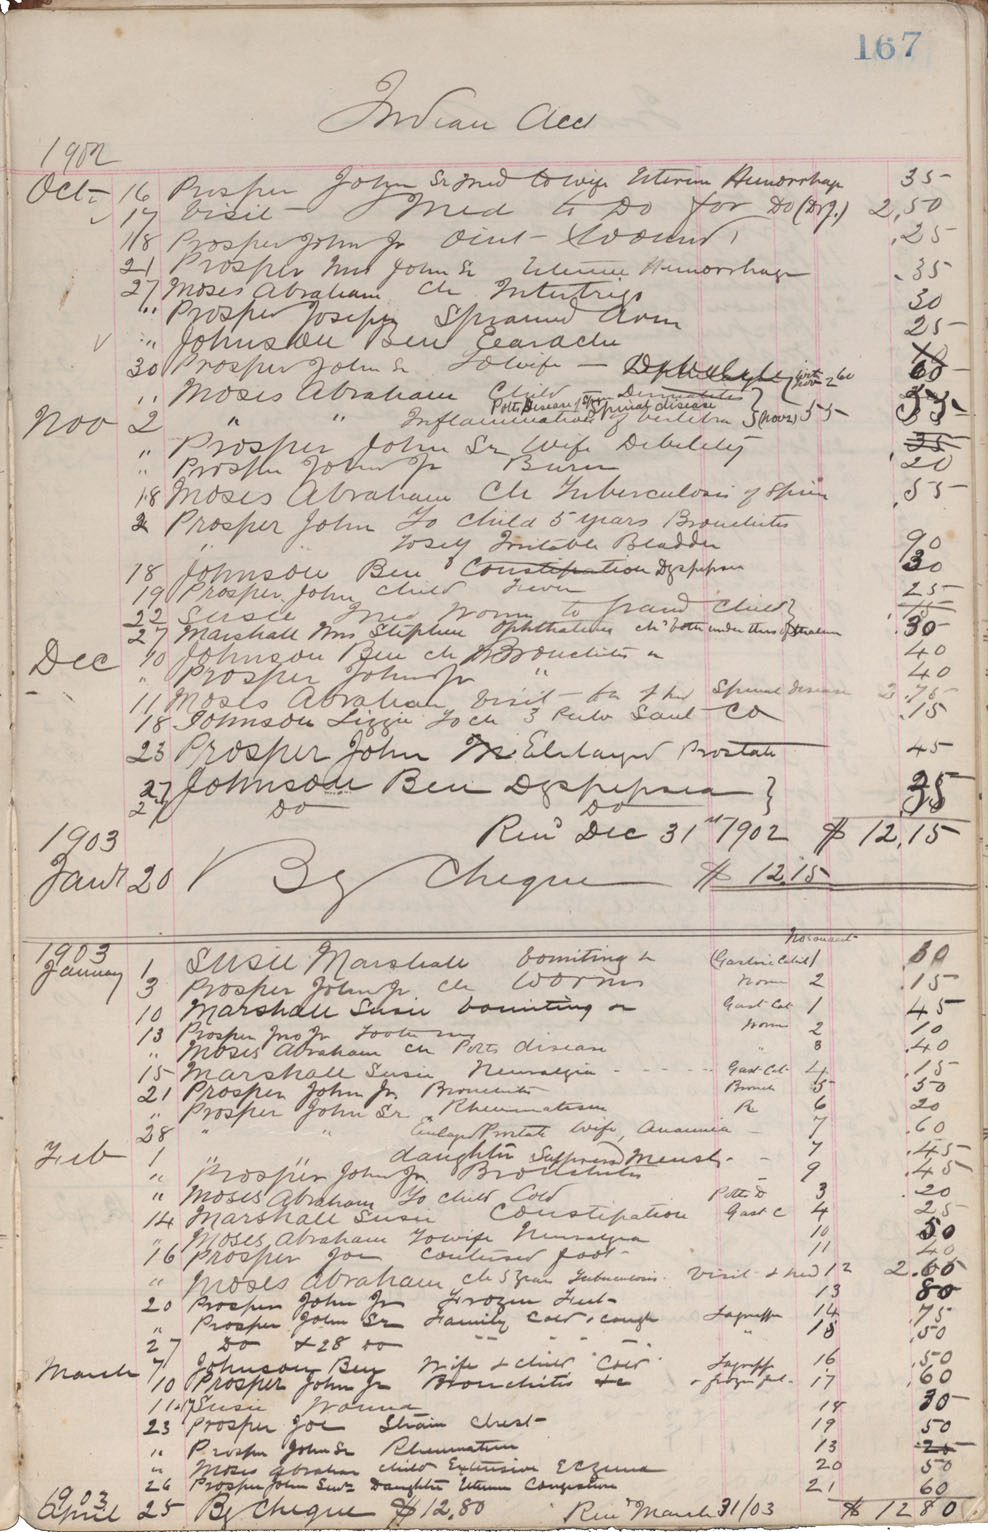 167
Indian Acct
1902
Oct 16 Prosper John Sr Med to wife Uterine Hemorrhage 35
17 Visit Med to Do for Do 2,50
18 Prosper John Jr Oint Wound .25
21 Prosper Mrs John Sr Uterine Hemorrhage .35
27 Moses Abraham Ch Intertrigo 30
" Prosper Joseph Sprained Arm 25
" Johnson Ben Earache
30 Prosper John Sr To wife 60
" Moses Abraham Child Dermatitis 55
Potts Disease Spinal disease
Nov 2 " " Inflammation of Vertebra (Nov 2) 55
" Prosper John Sr Wife Debility 35
" Prosper John Jr Burn 20
18 Moses Abraham Ch Tuberculosis of Spine .55
2 Prosper John To Child 5 years Bronchitis
" " To self Irritable Bladder 90
18 Johnson Ben Constipation Dyspepsia 30
19 Prosper John Child Fever 25
22 Susie Med Worm to grand Child
27 Marshall Mrs Stephen Ophthalmia ch both under this 30
Dec 10 Johnson Ben ch Bronchitis 40
" Prosper John Jr " 40
11 Moses Abraham Visit & Med Spinal disease 2.75
18 Johnson Lizzie To ch .15
23 Prosper John Enlarged Prostate 45
27 Johnson Ben Dyspepsia
27 Do Do
Ren'd Dec 31st 1902 $ 12,15
1903
Jany 20 By Cheque $ 12.15
1903
January 1 Susie Marshall Vomiting (Gastric Catarrh) 1
3 Prosper John Jr Ch Worms Worm 2 .15
10 Marshall Susie Vomiting Gast Cat 1 45
13 Prosper Jno Jr Worm 2 10
" Moses Abraham Ch Potts disease " 3 .40
15 Marshall Susie Neuralgia Gast Cat 4 .15
21 Prosper John Jr Bronchitis Bronch 5 50
" Prosper John Sr Rheumatism R 6 20
28 " " Enlarged Prostate Wife, Anaemia 7 .60
Feb 1 " " daughter Suppressed Menst. 7 .45
" Prosper John Jr Bronchitis 9 .45
" Moses Abraham To child Cold Potts D 3 .20
14 Marshall Susie Constipation Gast C 4 25
" Moses Abraham To wife Neuralgia 10 50
16 Prosper Joe Contused foot 11 40
" Moses Abraham ch 5 year Tuberculosis Visit & Med 12 2.
20 Prosper John Jr Frozen Feet 13 80
" Prosper John Sr Family Cold, cough Lagrippe 14 .75
27 Do & 28 Do " 15 .50
March 7 Johnson Ben Wife & child Cold Lagripp 16 .50
10 Prosper John Jr Bronchitis & frozen feet 17 .60
11 Susie 18 30
23 Prosper Joe Strain Chest 19 50
" Prosper John Sr Rheumatism 13 25
" Moses Abraham child Extensive Eczema 20 50
26 Prosper John Senr Daughter Uterine Congestion 21 60
1903
April 25 By Cheque $12,80 Ren'd March 31/03 $ 12 80